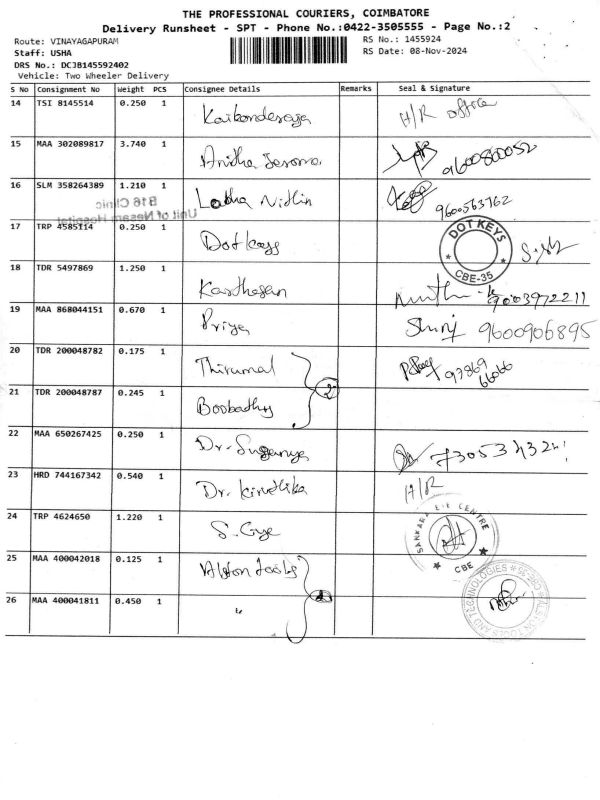 THE PROFESSIONAL COURIERS, COIMBATORE
Delivery Runsheet - SPT - Phone No.:0422-3505555 - Page No.:2
Route: VINAYAGAPURAM
RS No.: 1455924
Staff: USHA
RS Date: 08-Nov-2024
DRS No.: DCJB145592402
Vehicle: Two Wheeler Delivery
S No Consignment No Weight PCS Consignee Details Remarks Seal & Signature
14 TSI 8145514 0.250 1 H/R office
15 MAA 302089817 3.740 1 Anitha Jeroma 9600860052
16 SLM 358264389 1.210 1 Latha Nithin 9600563762
B16 Clinic
Unit of Nesam Hospital
17 TRP 4585114 0.250 1 Dot keys DOT KEYS CBE-35
18 TDR 5497869 1.250 1 9003972211
19 MAA 868044151 0.670 1 Priya 9600906895
20 TDR 200048782 0.175 1 Thirumal 97869
66066
21 TDR 200048787 0.245 1 Boobathy 2
22 MAA 650267425 0.250 1 Dr. Suganya
23 HRD 744167342 0.540 1 Dr. kiruthika H/R
24 TRP 4624650 1.220 1 SANKARA EYE CENTRE CBE
25 MAA 400042018 0.125 1 Alston tools
26 MAA 400041811 0.450 1 ALSTON TOOLS AND TECHNOLOGIES